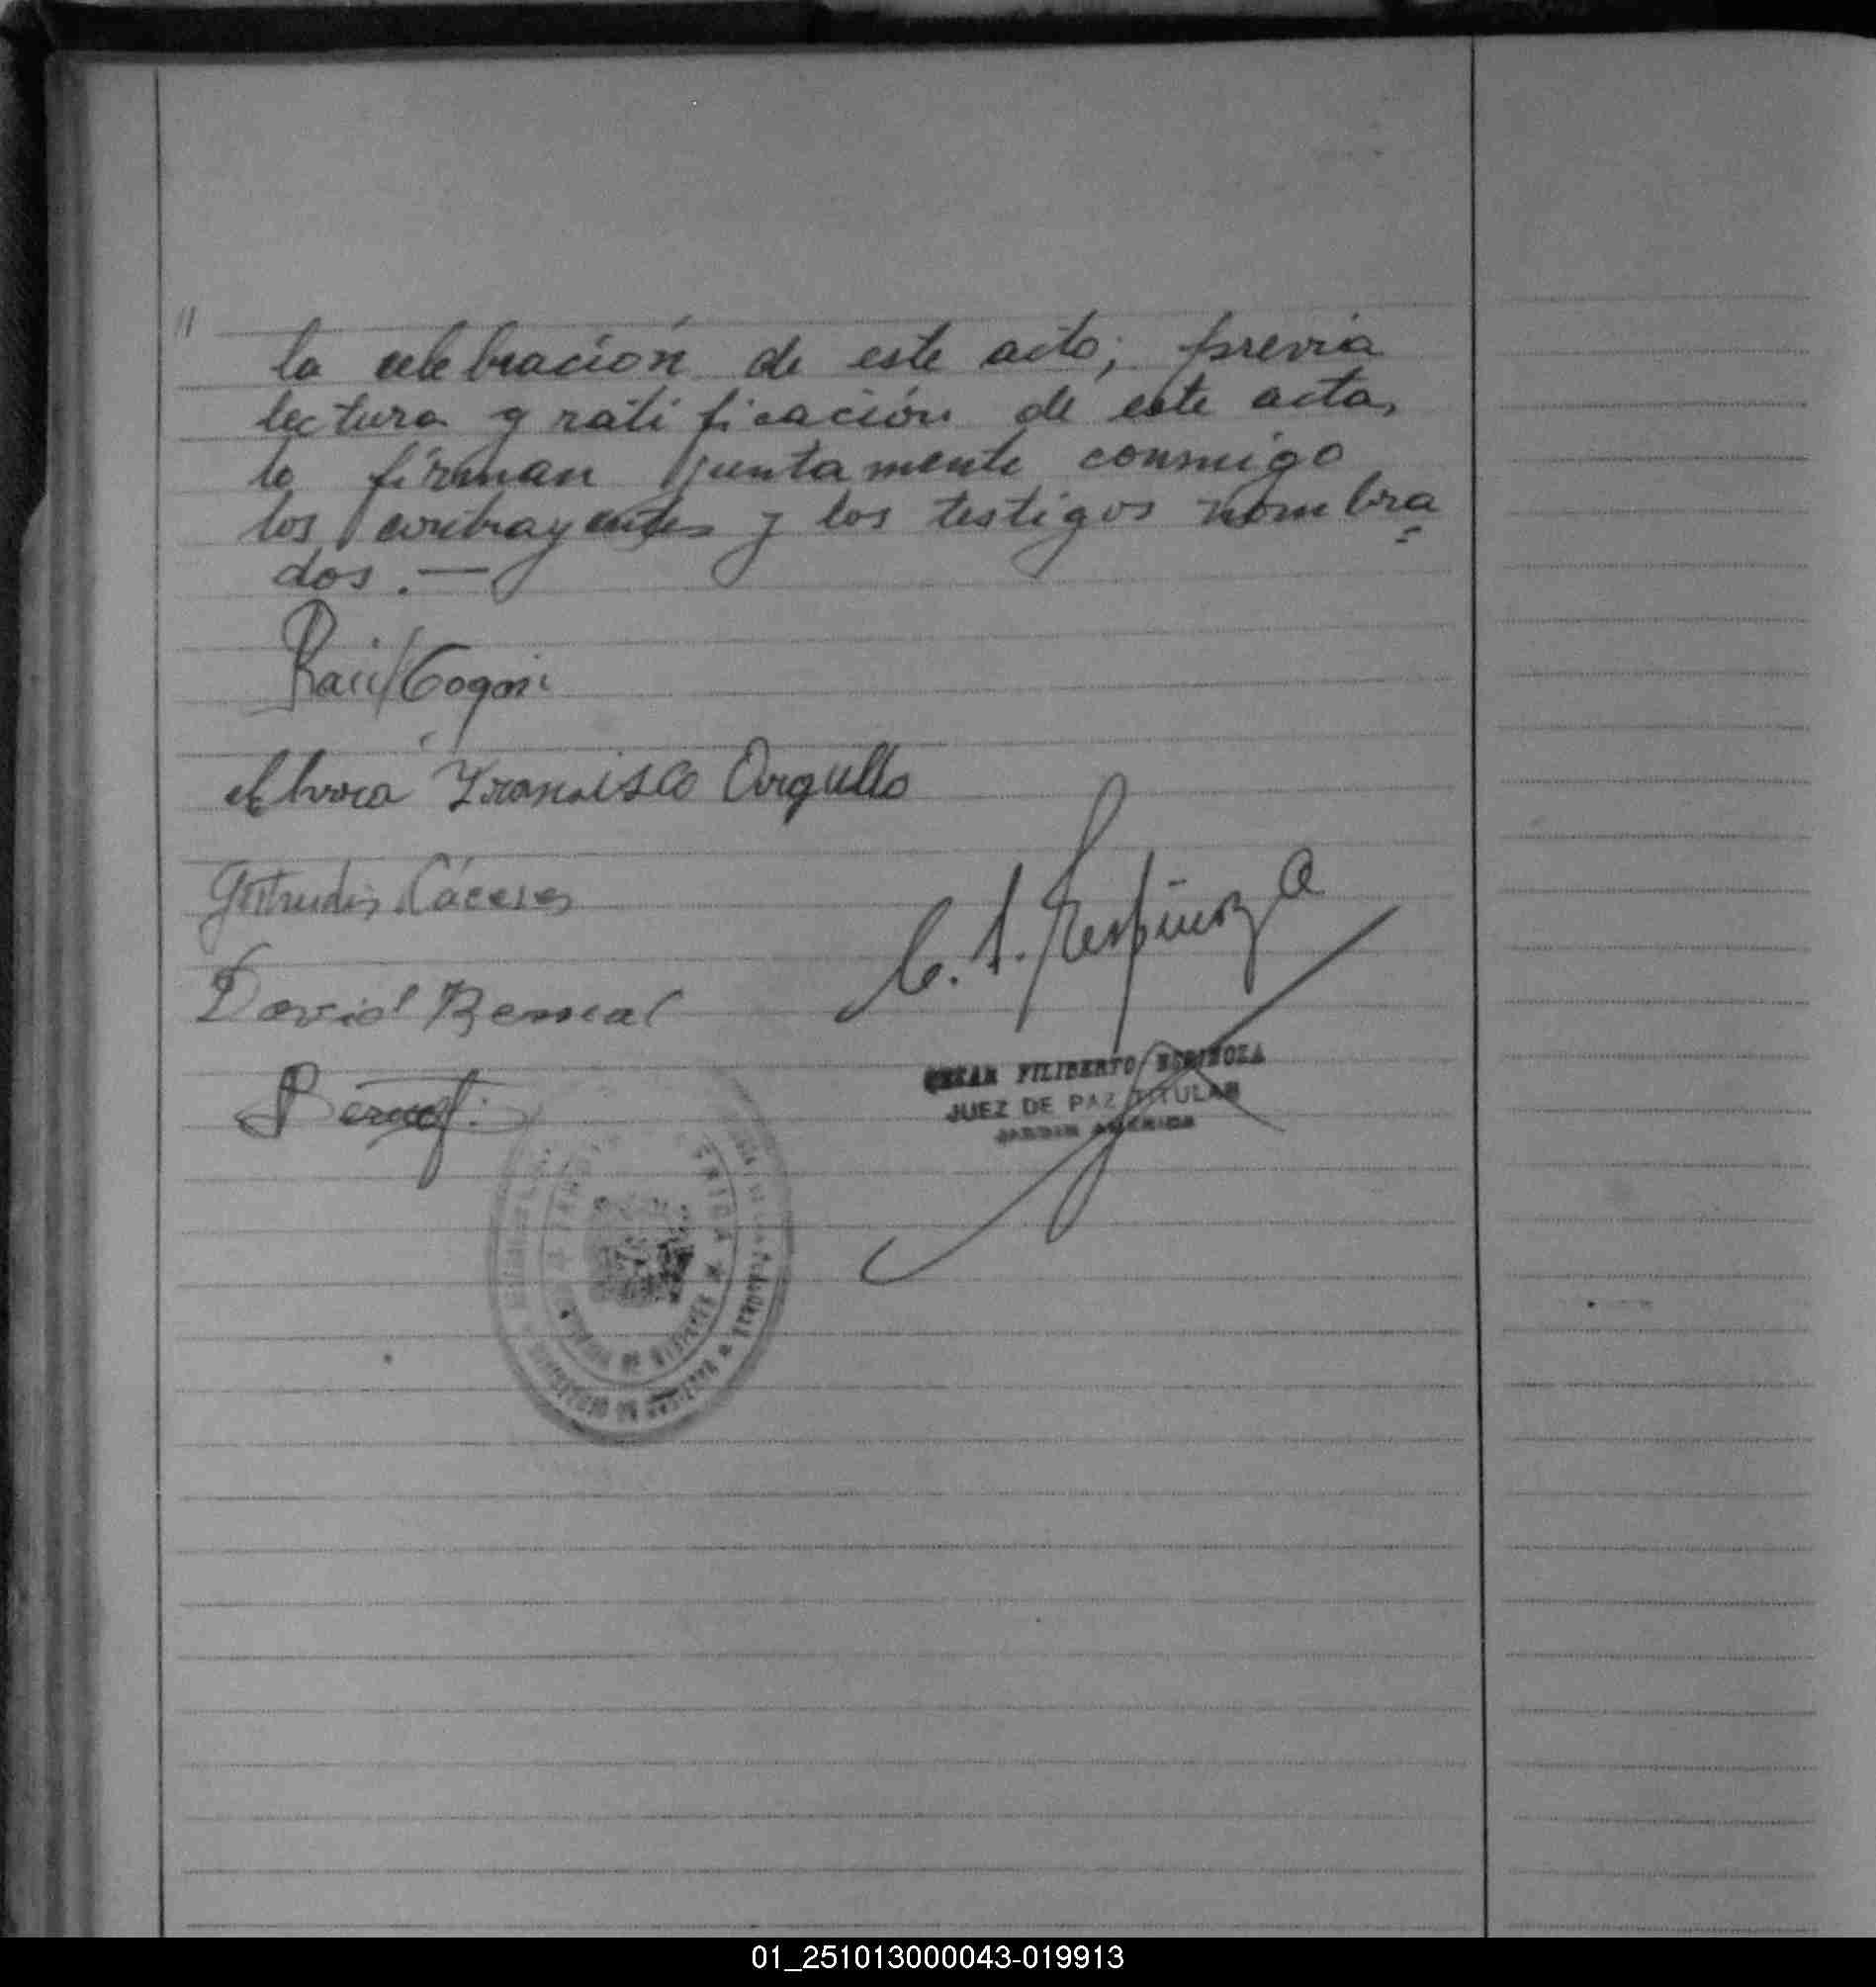 la celebración de este acto; previa
lectura y ratificación de este acta,
lo firman juntamente conmigo
los contrayentes y los testigos nombra=
dos.—
Raúl
Francisco Orgullo
Gertrudis Cáceres
David
C. F. Espinoza
CESAR FILIBERTO ESPINOZA
JUEZ DE PAZ TITULAR
JARDIN AMERICA
01_251013000043-019913